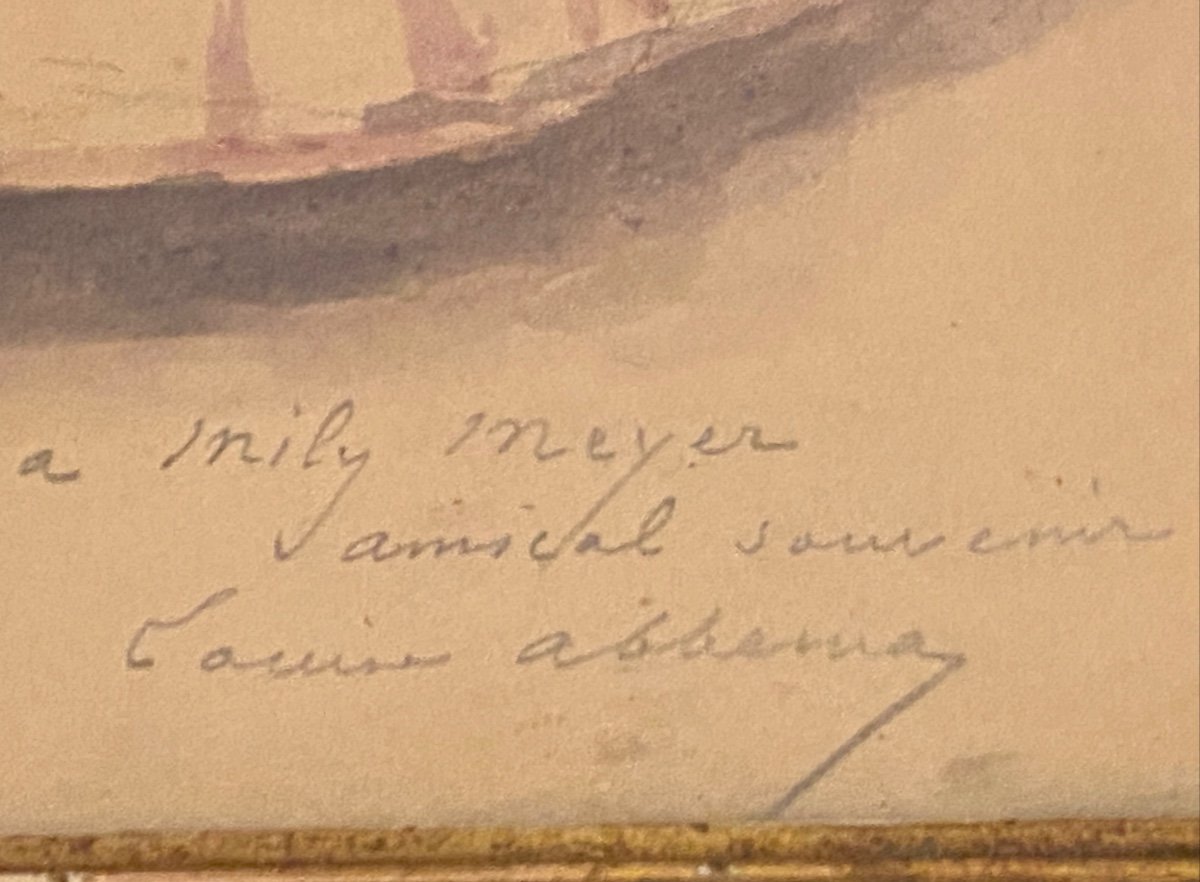 a Mily Meyer
amical souvenir
Louise abbema